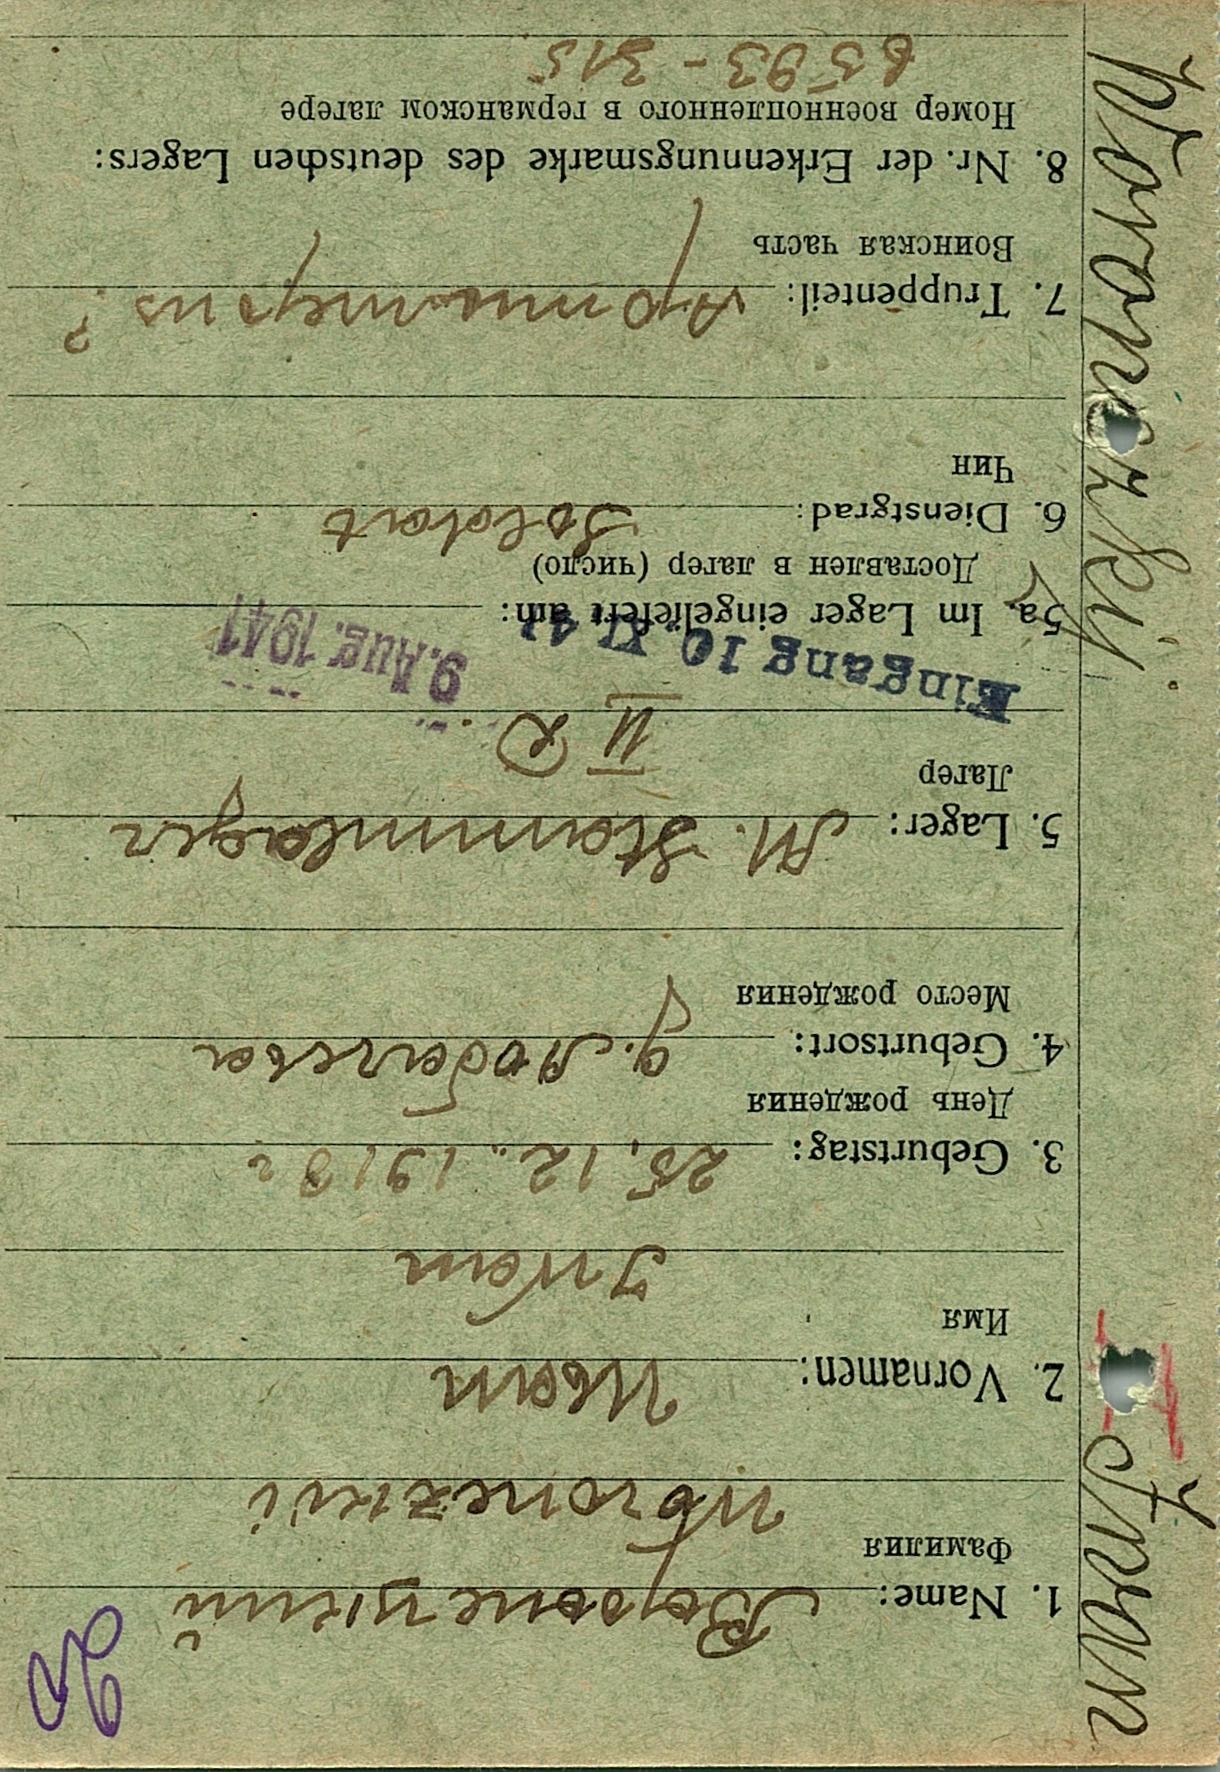 1. Name: Воронецкий
Фамилия
Woronezkii
2. Vornamen: Иван
Имя
Iwan
3. Geburtstag: 25.12.1918 г
День рождения
4. Geburtsort:
Место рождения
5. Lager: M. Stammlager
Лагер
II D.
Eingang 10. XI. 41
9. Aug. 1941
5a. Im Lager eingeliefert am:
Доставлен в лагер (число)
6. Dienstgrad: Soldat
Чин
7. Truppenteil: Артиллерия ?
Воинская часть
8. Nr. der Erkennungsmarke des deutschen Lagers:
Номер военнопленного в германском лагере
6593 - 315
Woronezkij
Iwan